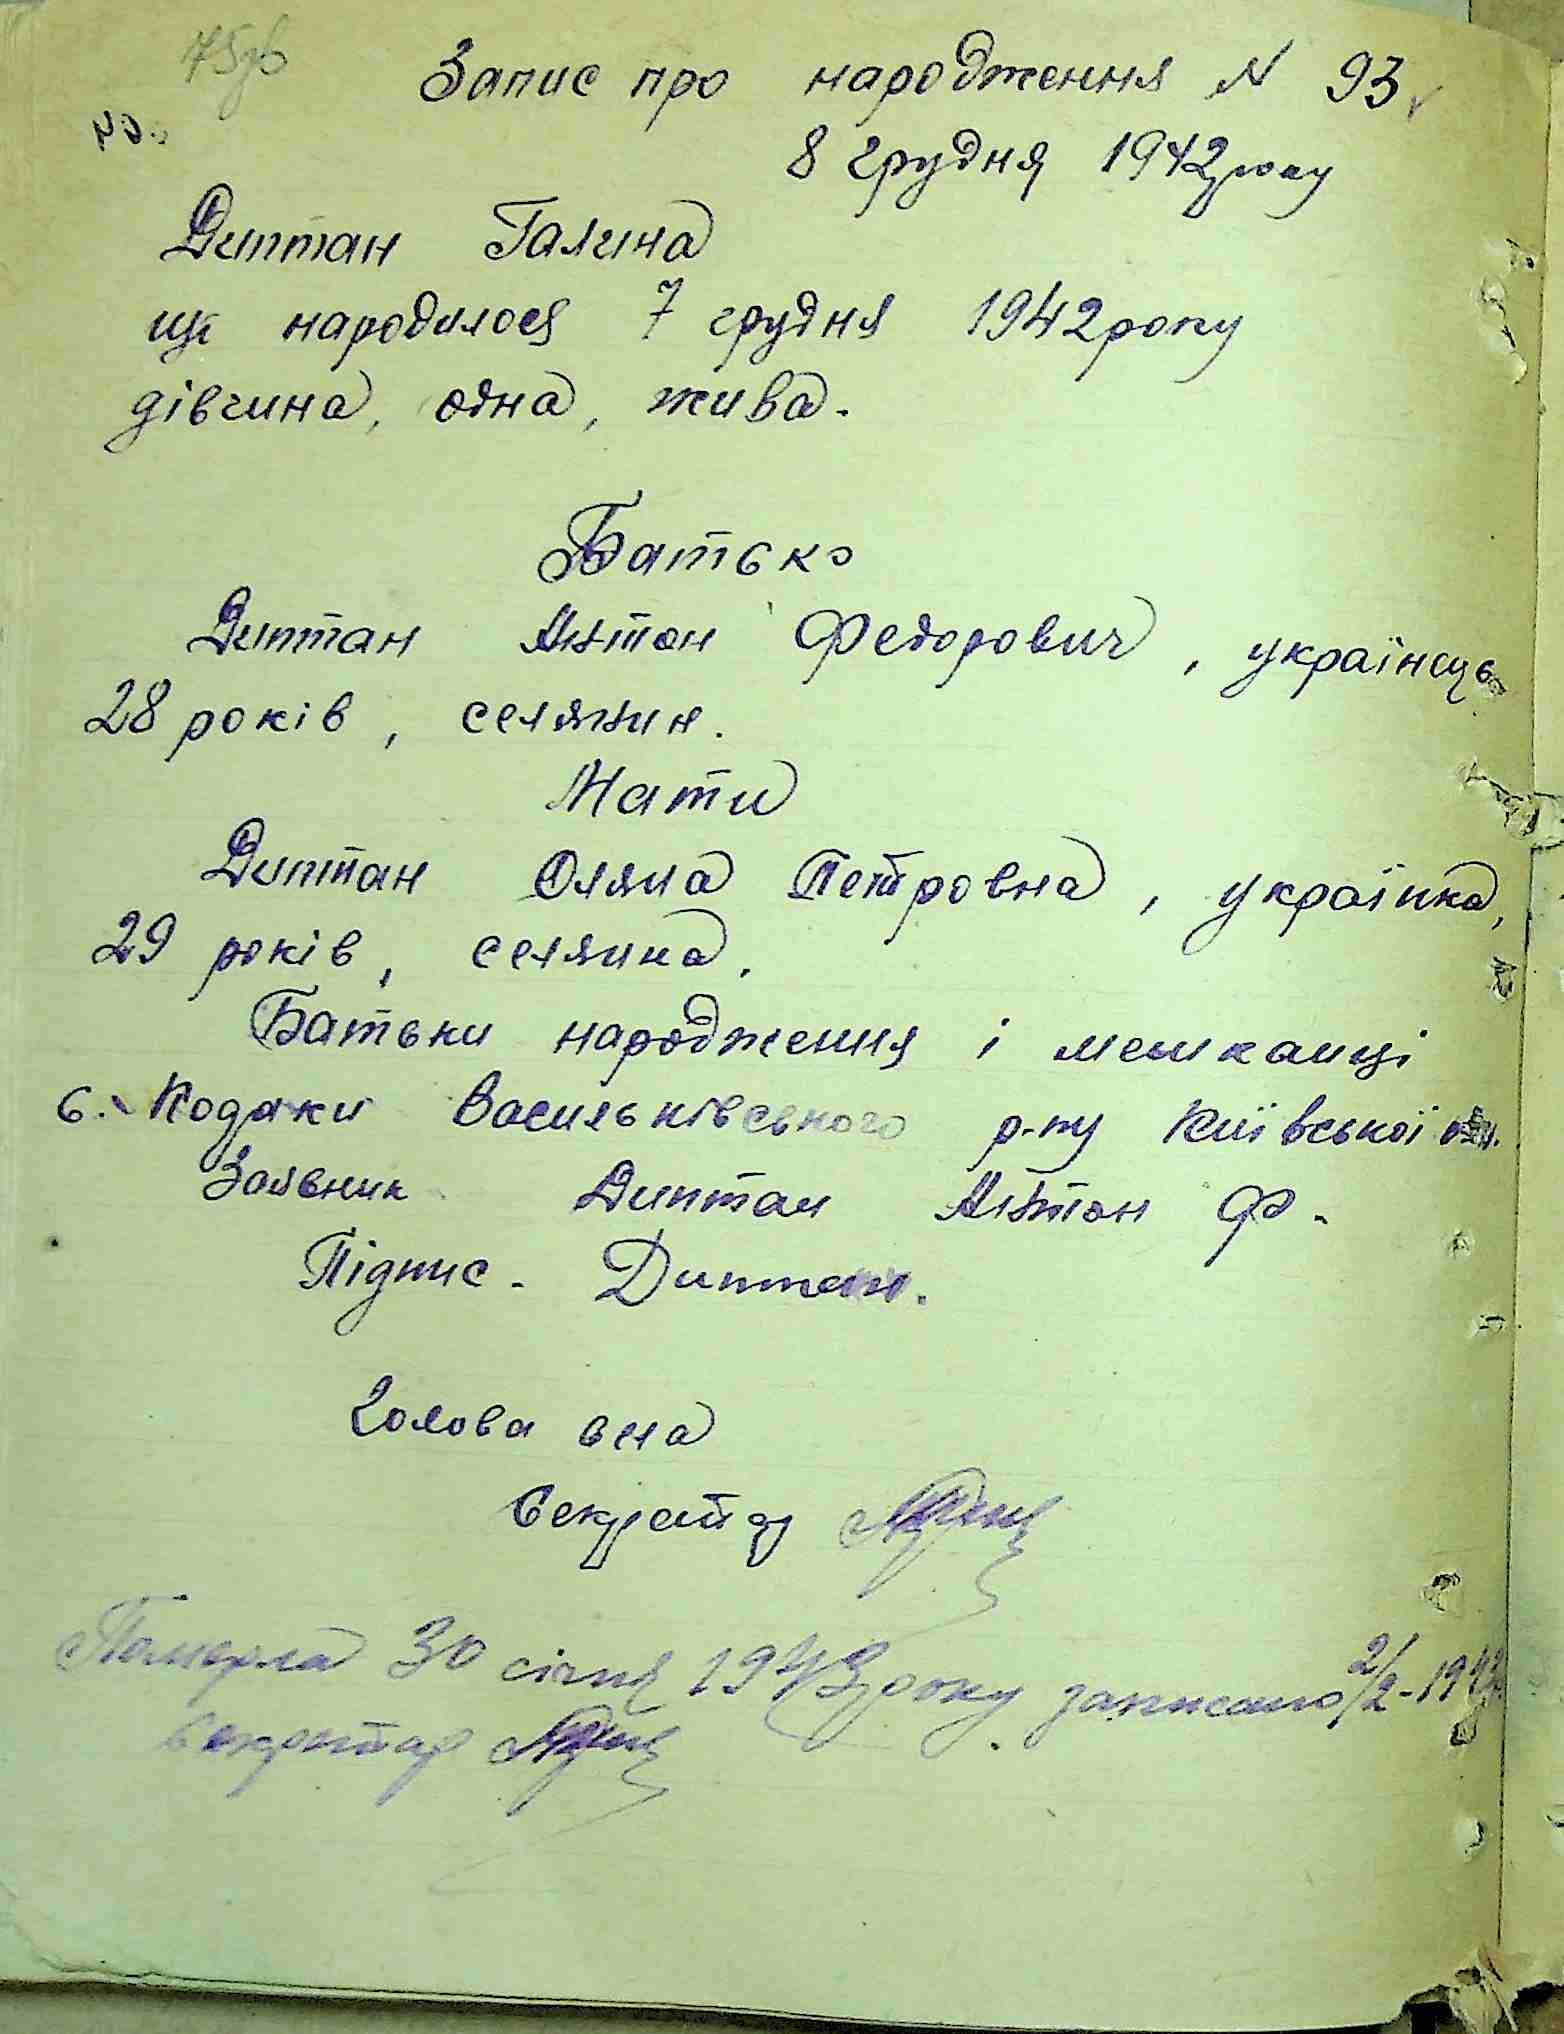 Запис про народження N 93
8 грудня 1942 року
Диптан Галина
що народилося 7 грудня 1942 року
дівчина, одна, жива.
Батько
Диптан Антон Федорович, українець
28 років, селянин.
Мати
Диптан Оляна Петровна, українка,
29 років, селянка.
Батьки народження і мешканці
с. Кодаки Васильківського р-ну Київської обл.
Заявник Диптан Антон Ф.
Підпис - Диптан.
Голова
Секретар
Померла 30 січня 1943 року записано 2/2-1943
Секретар